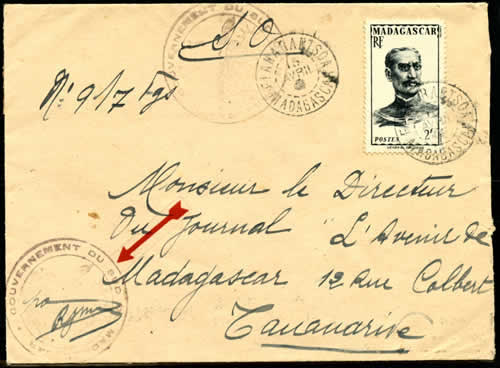 GOUVERNEMENT DU SUD
S.O.
FIANARANTSOA
MADAGASCAR
MADAGASCAR
RF
POSTES
2F
MADAGASCAR
N° 917 Fgs
Monsieur le Directeur
du Journal "L'Avenir de
Madagascar 12 rue Colbert
Tananarive
GOUVERNEMENT DU SUD
pro